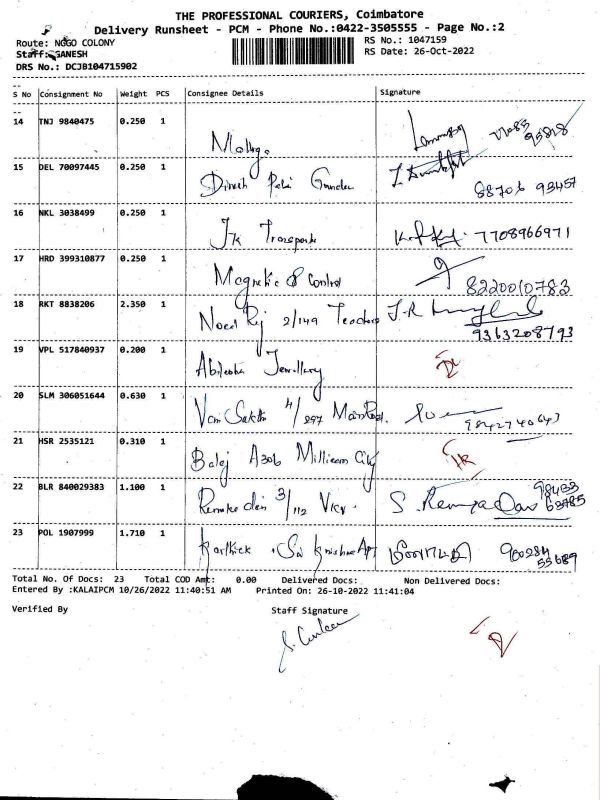 THE PROFESSIONAL COURIERS, Coimbatore
Delivery Runsheet - PCM - Phone No.:0422-3505555 - Page No.:2
Route: NGGO COLONY
RS No.: 1047159
Staff: GANESH
RS Date: 26-Oct-2022
DRS No.: DCJB104715902
S No Consignment No Weight PCS Consignee Details Signature
14 TNJ 9840475 0.250 1
15 DEL 70097445 0.250 1 Dinesh
88706 93457
16 NKL 3038499 0.250 1 JK Transports 7708966971
17 HRD 399310877 0.250 1 Magnetic & Control 8220010783
18 RKT 8838206 2.350 1 Noel Raj 2/149 Teachers
9363208793
19 VPL 517840937 0.200 1 Jewellery
20 SLM 306051644 0.630 1 Vani Sakthi 4/297 Main Road.
9842740647
21 HSR 2535121 0.310 1 Balaj A306 Millieam City
22 BLR 840029383 1.100 1 3/112 S. Remya
23 POL 1907999 1.710 1 Karthick Sai Krishna Apt 900284
55689
Total No. Of Docs: 23 Total COD Amt: 0.00 Delivered Docs: Non Delivered Docs:
Entered By :KALAIPCM 10/26/2022 11:40:51 AM Printed On: 26-10-2022 11:41:04
Verified By Staff Signature